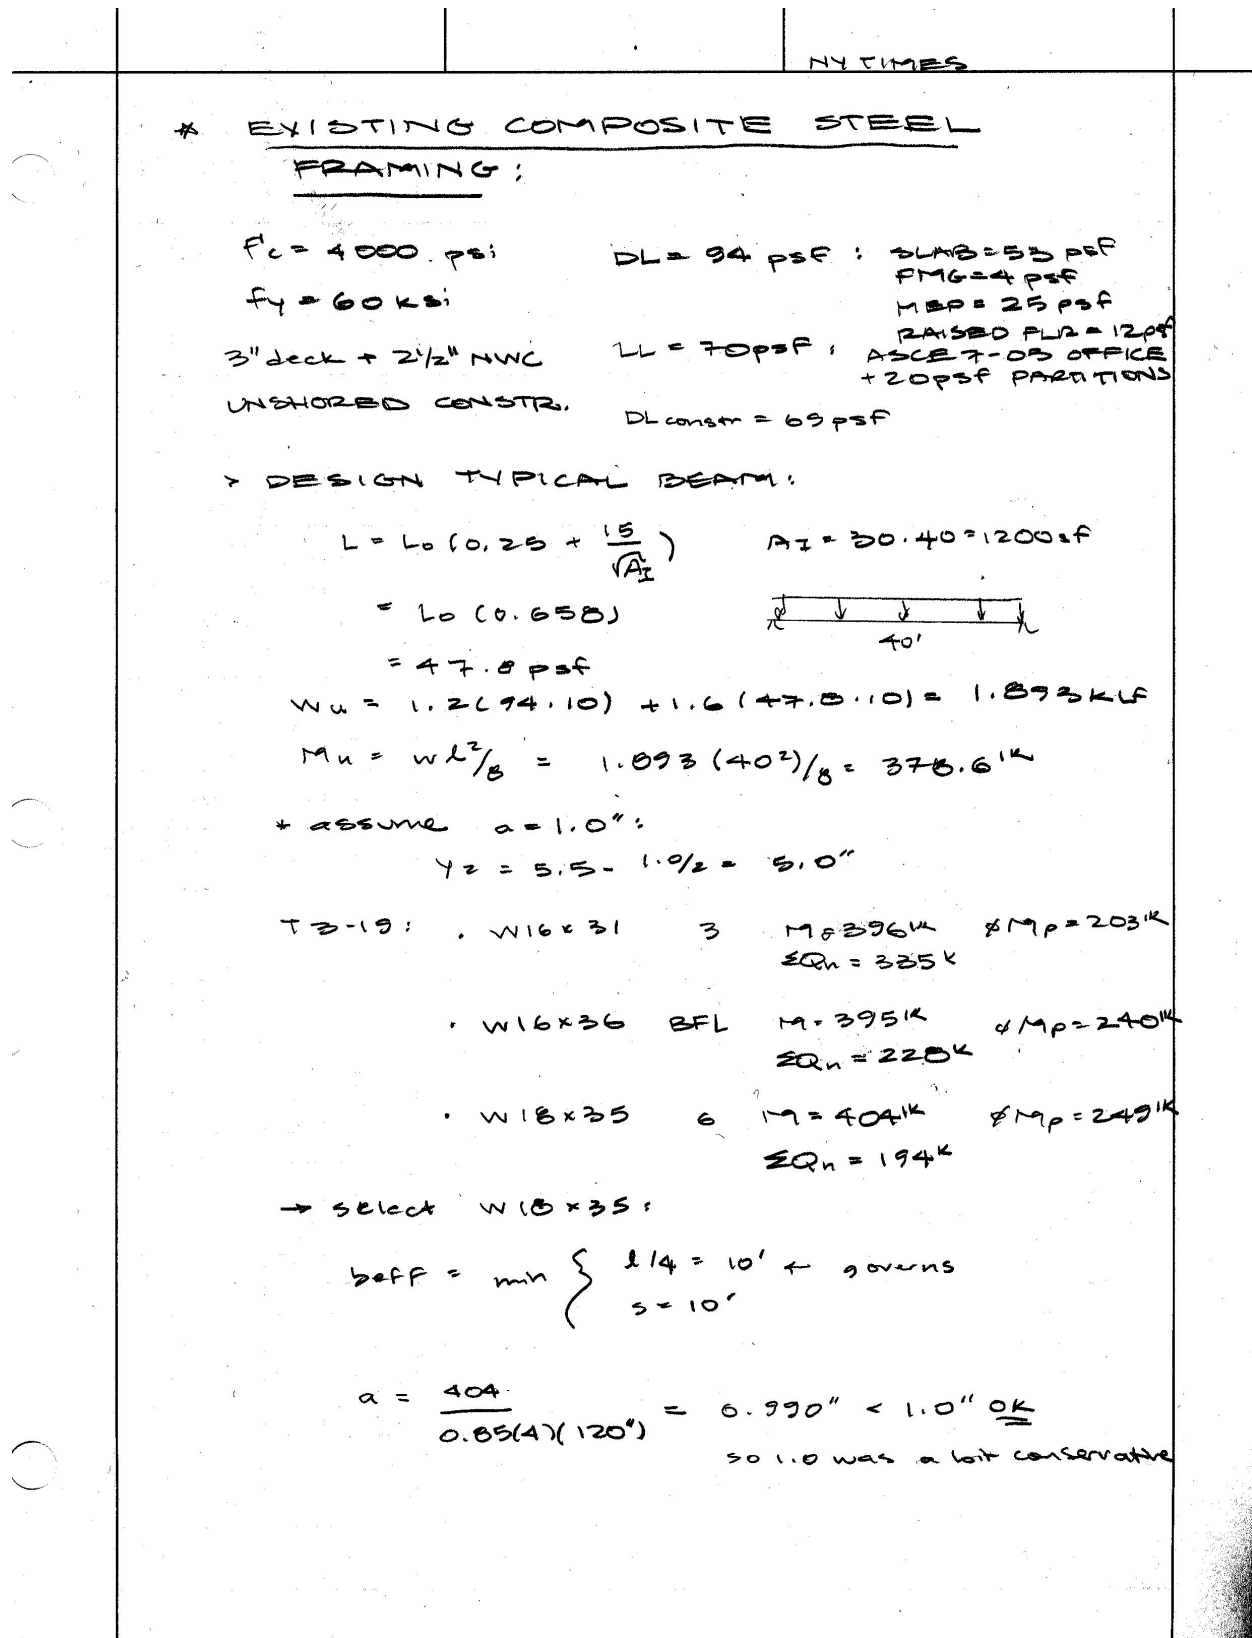 NY TIMES
* EXISTING COMPOSITE STEEL
FRAMING:
f'c = 4000 psi
fy = 60 ksi
3" deck + 2 1/2" NWC
UNSHORED CONSTR.
DL = 94 psf : SLAB = 53 psf
FMG = 4 psf
MEP = 25 psf
RAISED FLR = 12 psf
LL = 70psf : ASCE 7-05 OFFICE
+20psf PARTITIONS
DL constr = 69 psf
> DESIGN TYPICAL BEAM:
L = Lo (0.25 + 15/√AI) AI = 30·40 = 1200 sf
= Lo (0.658)
40'
= 47.8 psf
Wu = 1.2(94·10) + 1.6(47.8·10) = 1.893 KLF
Mu = wl²/8 = 1.893(40²)/8 = 378.6 'k
* assume a = 1.0":
Y2 = 5.5 - 1.0/2 = 5.0"
T 3-19: · W16x31 3 M=396'k ϕMp = 203'k
ΣQn = 335k
· W16x36 BFL M = 395'k ϕMp = 240'k
ΣQn = 228k
· W18x35 6 M = 404'k ϕMp = 249'k
ΣQn = 194k
→ select W18x35:
beff = min { l/4 = 10' ← governs
s = 10'
a = 404/0.85(4)(120") = 0.990" < 1.0" OK
so 1.0 was a bit conservative